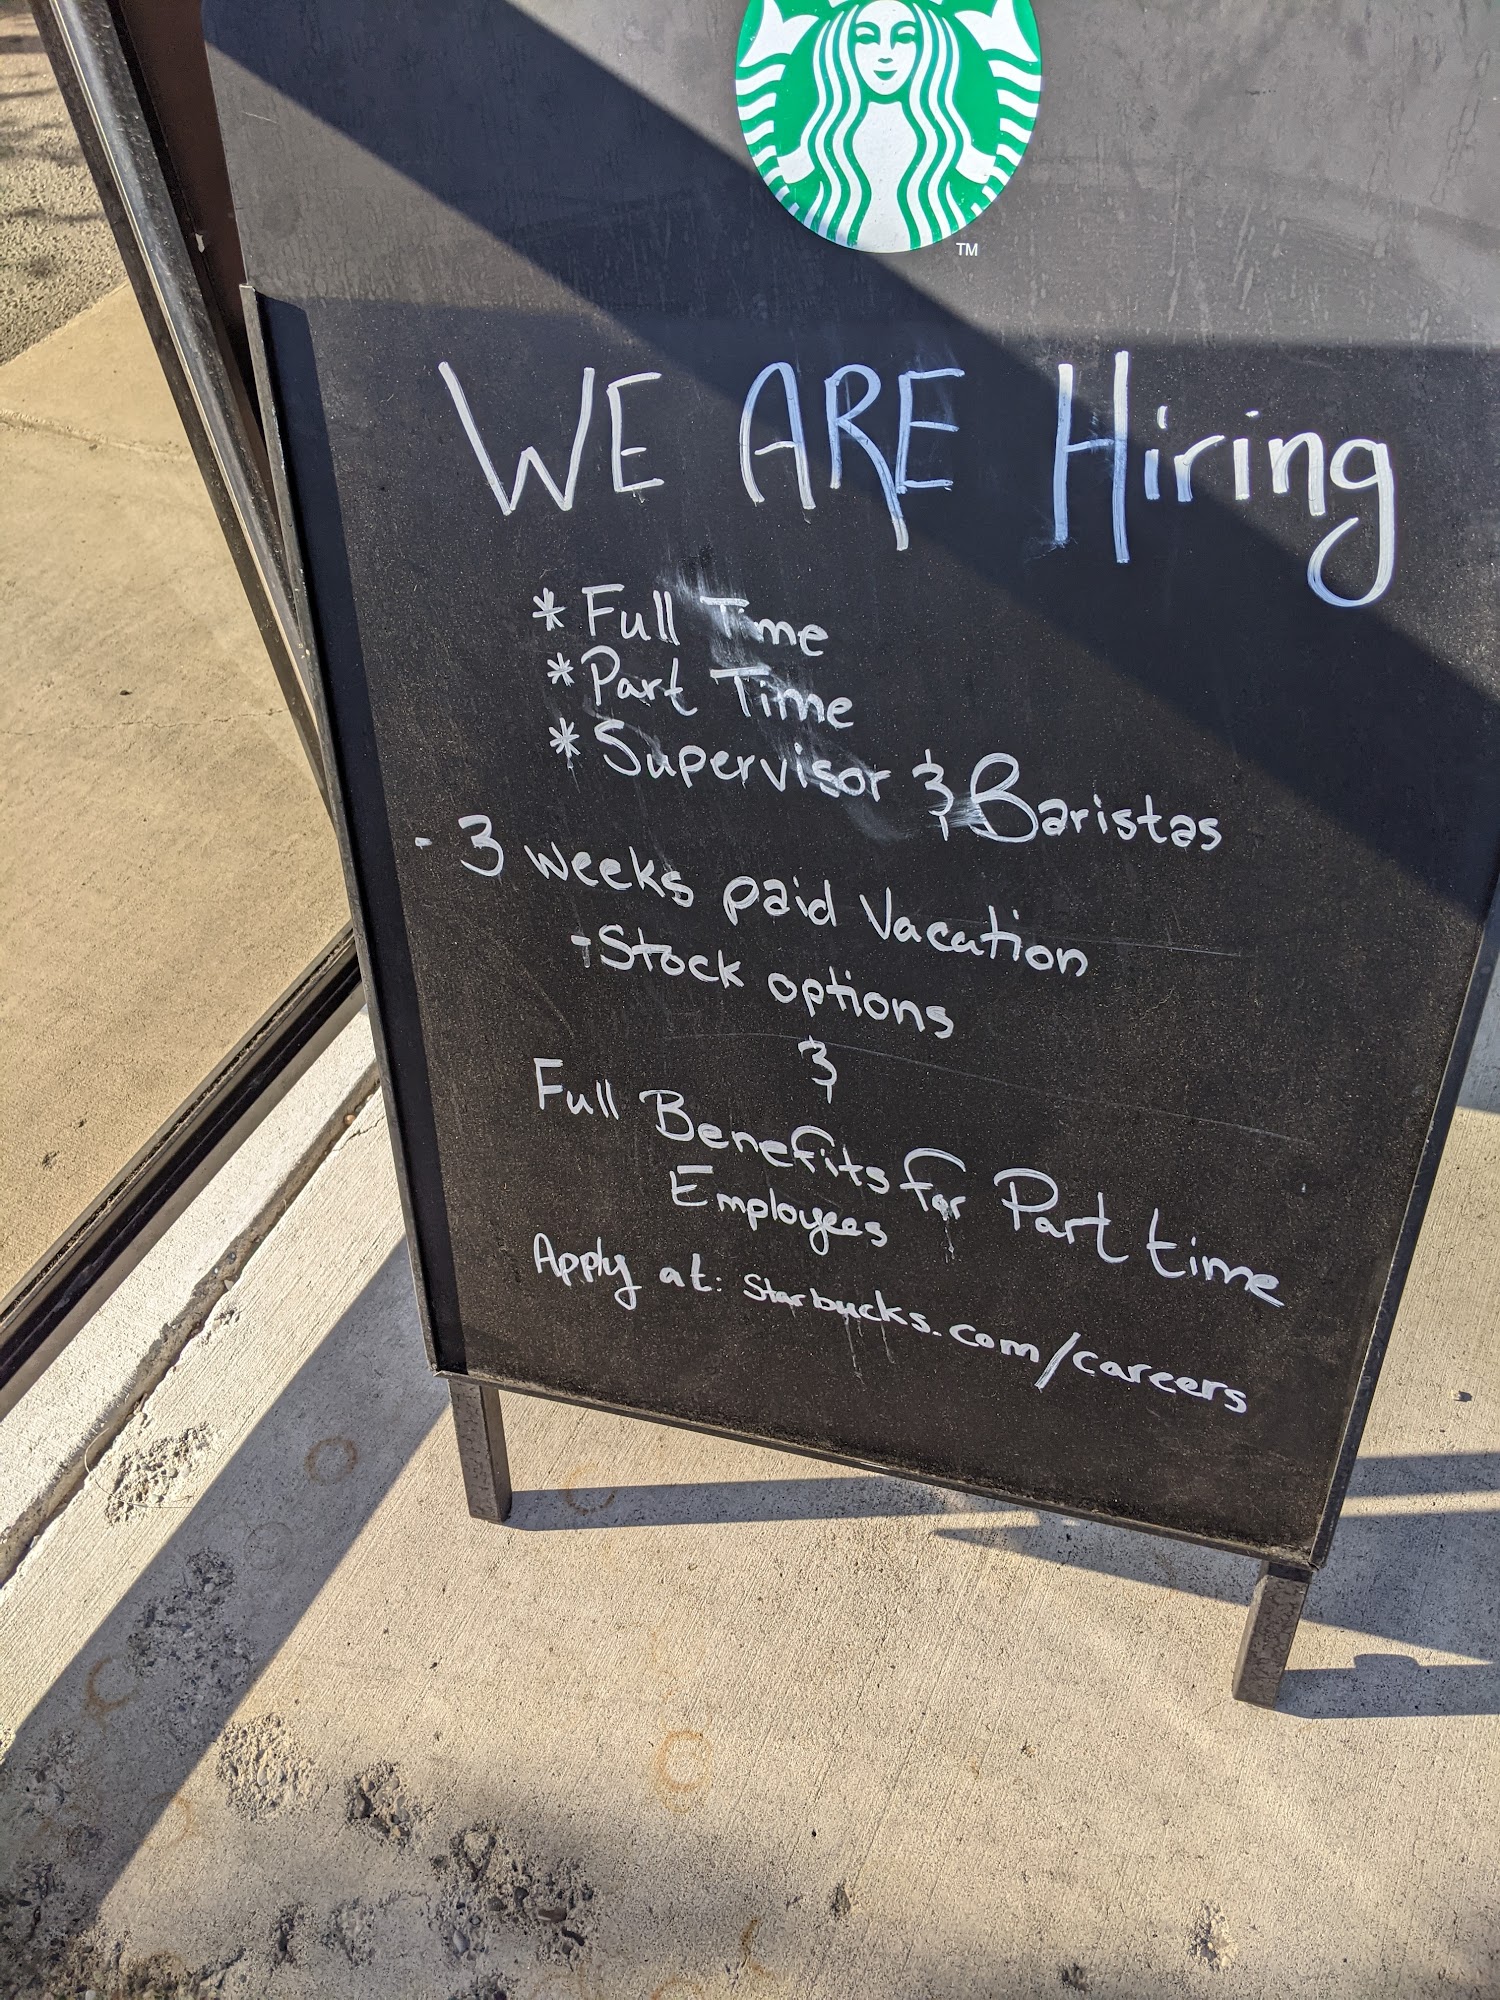 TM
WE ARE Hiring
* Full Time
* Part Time
* Supervisor & Baristas
- 3 weeks paid Vacation
- Stock options
&
Full Benefits for Part time
Employees
Apply at: Starbucks.com/careers